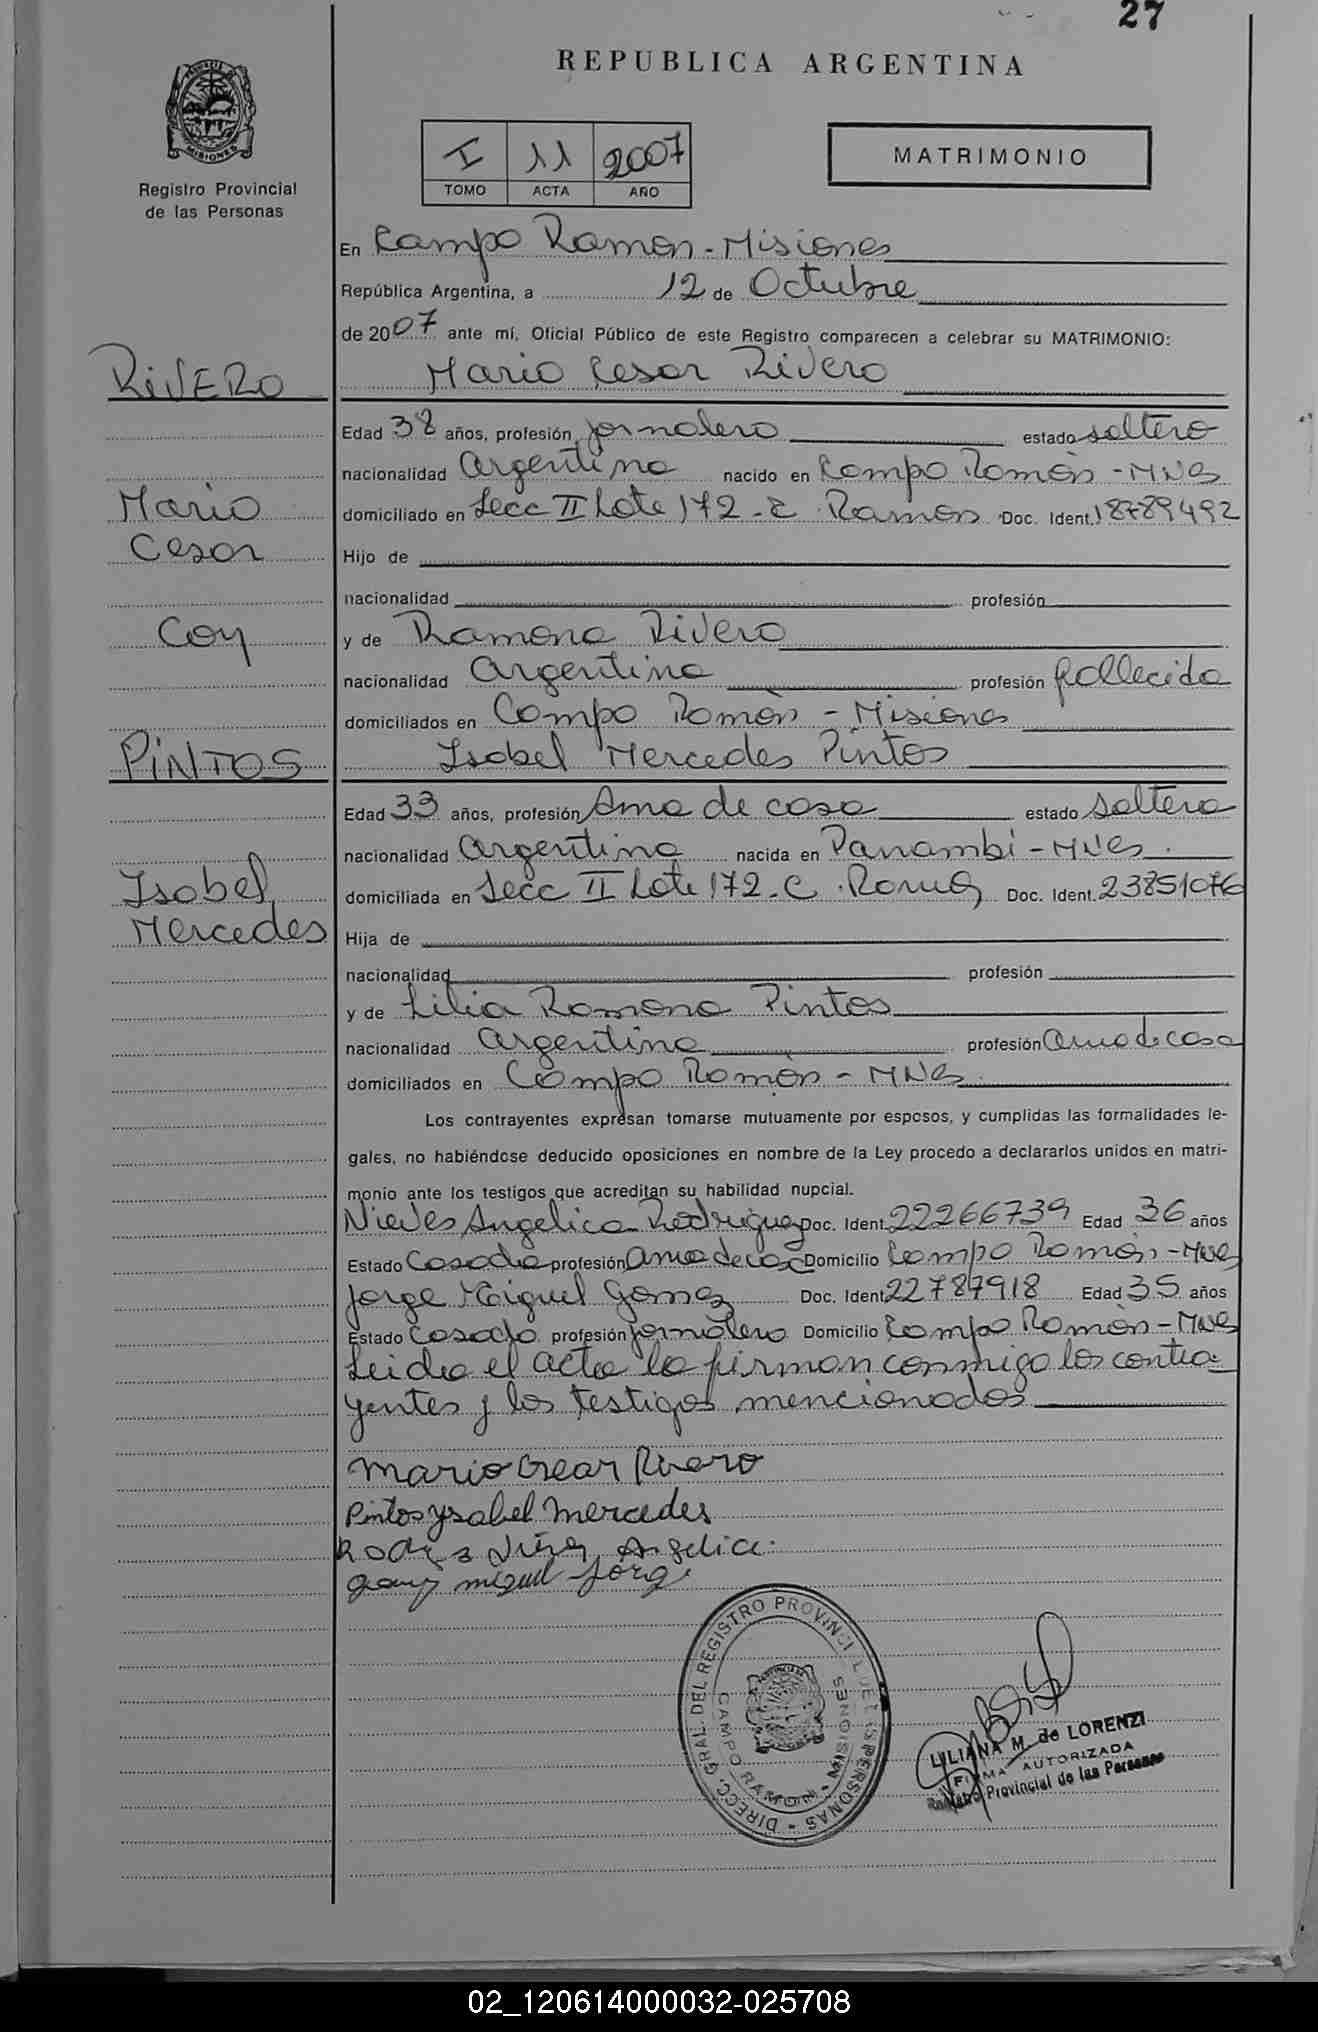 27
REPUBLICA ARGENTINA
PROVINCIA DE
MISIONES
Registro Provincial
de las Personas
I 11 2007
TOMO ACTA AÑO
MATRIMONIO
En Campo Ramón - Misiones
República Argentina, a 12 de Octubre
de 2007 ante mí, Oficial Público de este Registro comparecen a celebrar su MATRIMONIO:
RIVERO
Mario Cesar Rivero
Edad 38 años, profesión jornalero estado soltero
nacionalidad Argentina nacido en Campo Ramón - Mnes
Mario
domiciliado en Secc II Lote 172 - C. Ramón Doc. Ident. 18789492
Cesar
Hijo de
nacionalidad profesión
Con
y de Ramona Rivero
nacionalidad Argentina profesión fallecida
domiciliados en Campo Ramón - Misiones
PINTOS
Isabel Mercedes Pintos
Edad 33 años, profesión Ama de casa estado soltera
nacionalidad Argentina nacida en Panambí - Mnes.
Isabel
domiciliada en Secc II Lote 172 - C. Doc. Ident. 23851076
Mercedes
Hija de
nacionalidad profesión
y de Lilia Ramona Pintos
nacionalidad Argentina profesión ama de casa
domiciliados en Campo Ramón - Mnes
Los contrayentes expresan tomarse mutuamente por esposos, y cumplidas las formalidades le-
gales, no habiéndose deducido oposiciones en nombre de la Ley procedo a declararlos unidos en matri-
monio ante los testigos que acreditan su habilidad nupcial.
Nieves Angelica Rodriguez Doc. Ident. 22266739 Edad 36 años
Estado Casada profesión ama de casa Domicilio Campo Ramón - Mnes
Jorge Miguel Gomez Doc. Ident. 22787918 Edad 35 años
Estado Casado profesión jornalero Domicilio Campo Ramón - Mnes
Leida el acta la firman conmigo los contra-
yentes y los testigos mencionados
Mario Cesar Rivero
Pintos Ysabel Mercedes
Angelica
miguel Jorge
DIRECC. GRAL. DEL REGISTRO PROVINCIAL DE LAS PERSONAS
CAMPO RAMON - MISIONES
LILIANA M. de LORENZI
FIRMA AUTORIZADA
Registro Provincial de las Personas
02_120614000032-025708